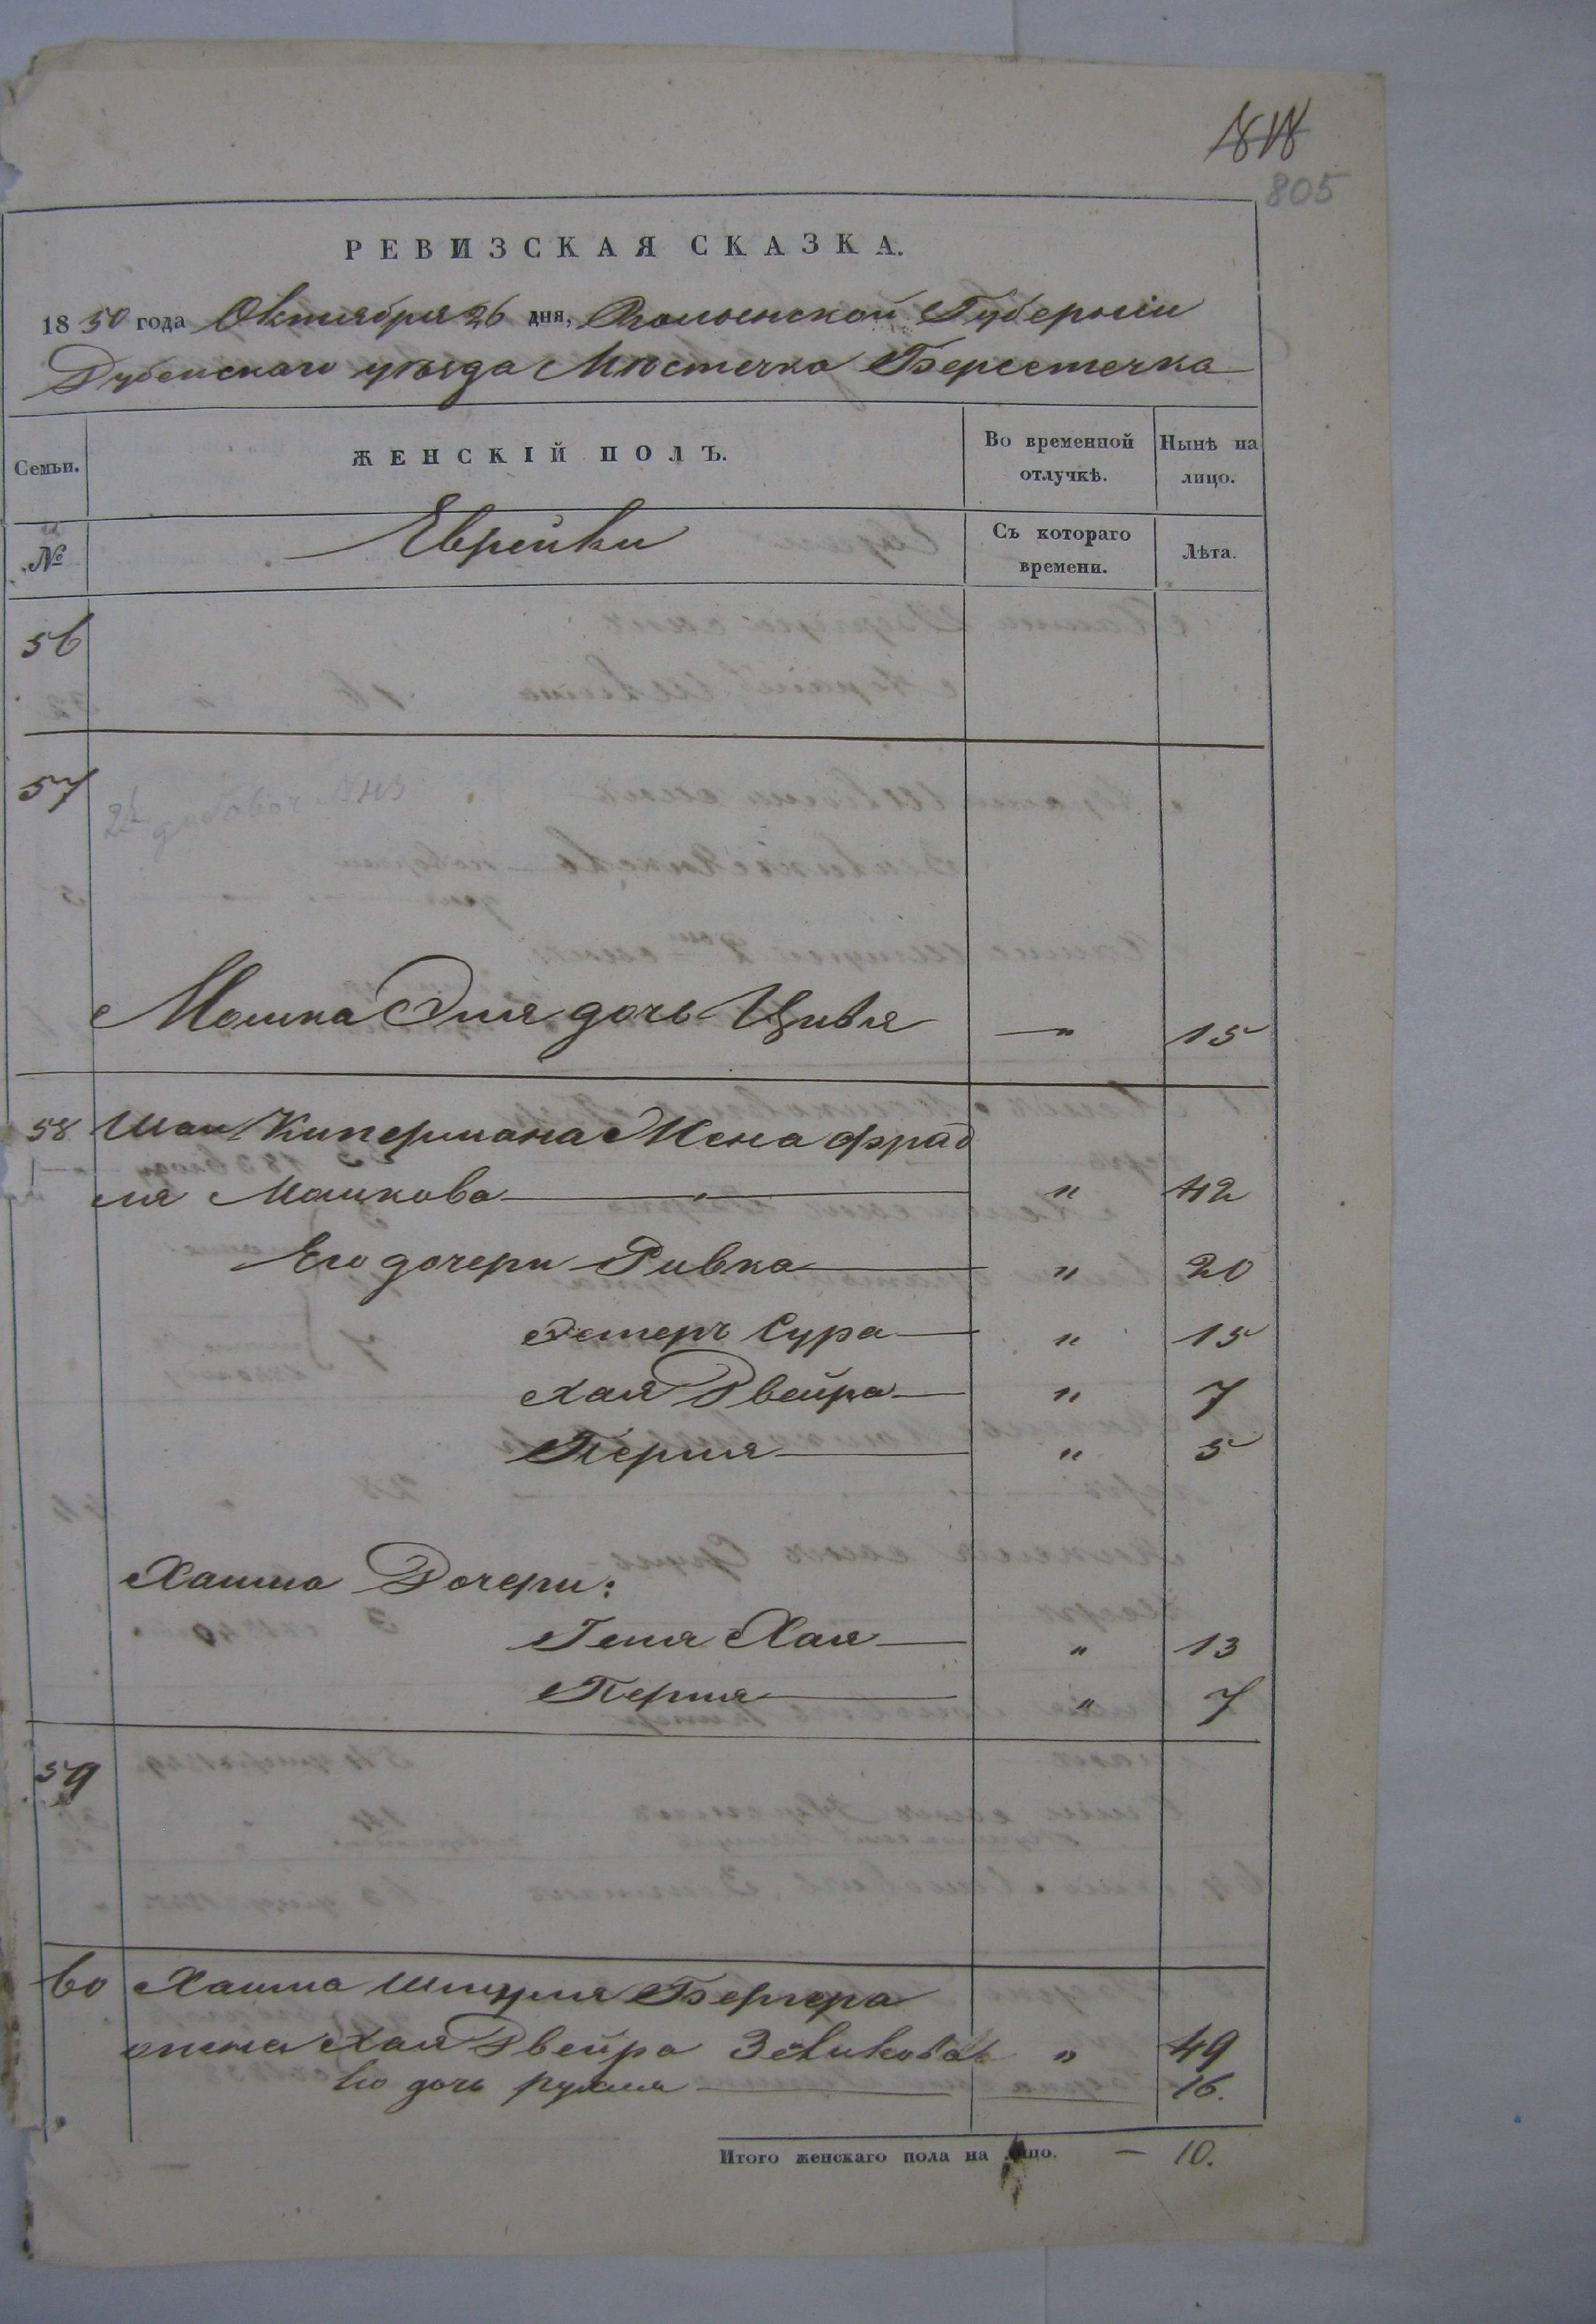 818
805
РЕВИЗСКАЯ СКАЗКА.
1850 года Октября 26 дня, Волынской Губерніи
Дубенскаго уѣзда Мѣстечка Берестечка
Семьи.
ЖЕНСКІЙ ПОЛЪ.
Во временной отлучкѣ.
Нынѣ на лицо.
№
Еврейки
Съ котораго времени.
Лѣта.
56
57
Мошка Эля дочь Цивья — " 15
58 Шаи Кипермана Жена Фрад
ля Мошкова " 42
Его дочери Ривка " 20
Эстеръ Сура " 15
Хая Двейра " 7
Перля " 5
Хаима Дочери:
Геня Хая " 13
Перля " 7
59
60 Хаима Шмуля Бергера
жена Хая Двейра Зеликова " 49
Его дочь Рухля 16.
Итого женскаго пола на лицо. — 10.